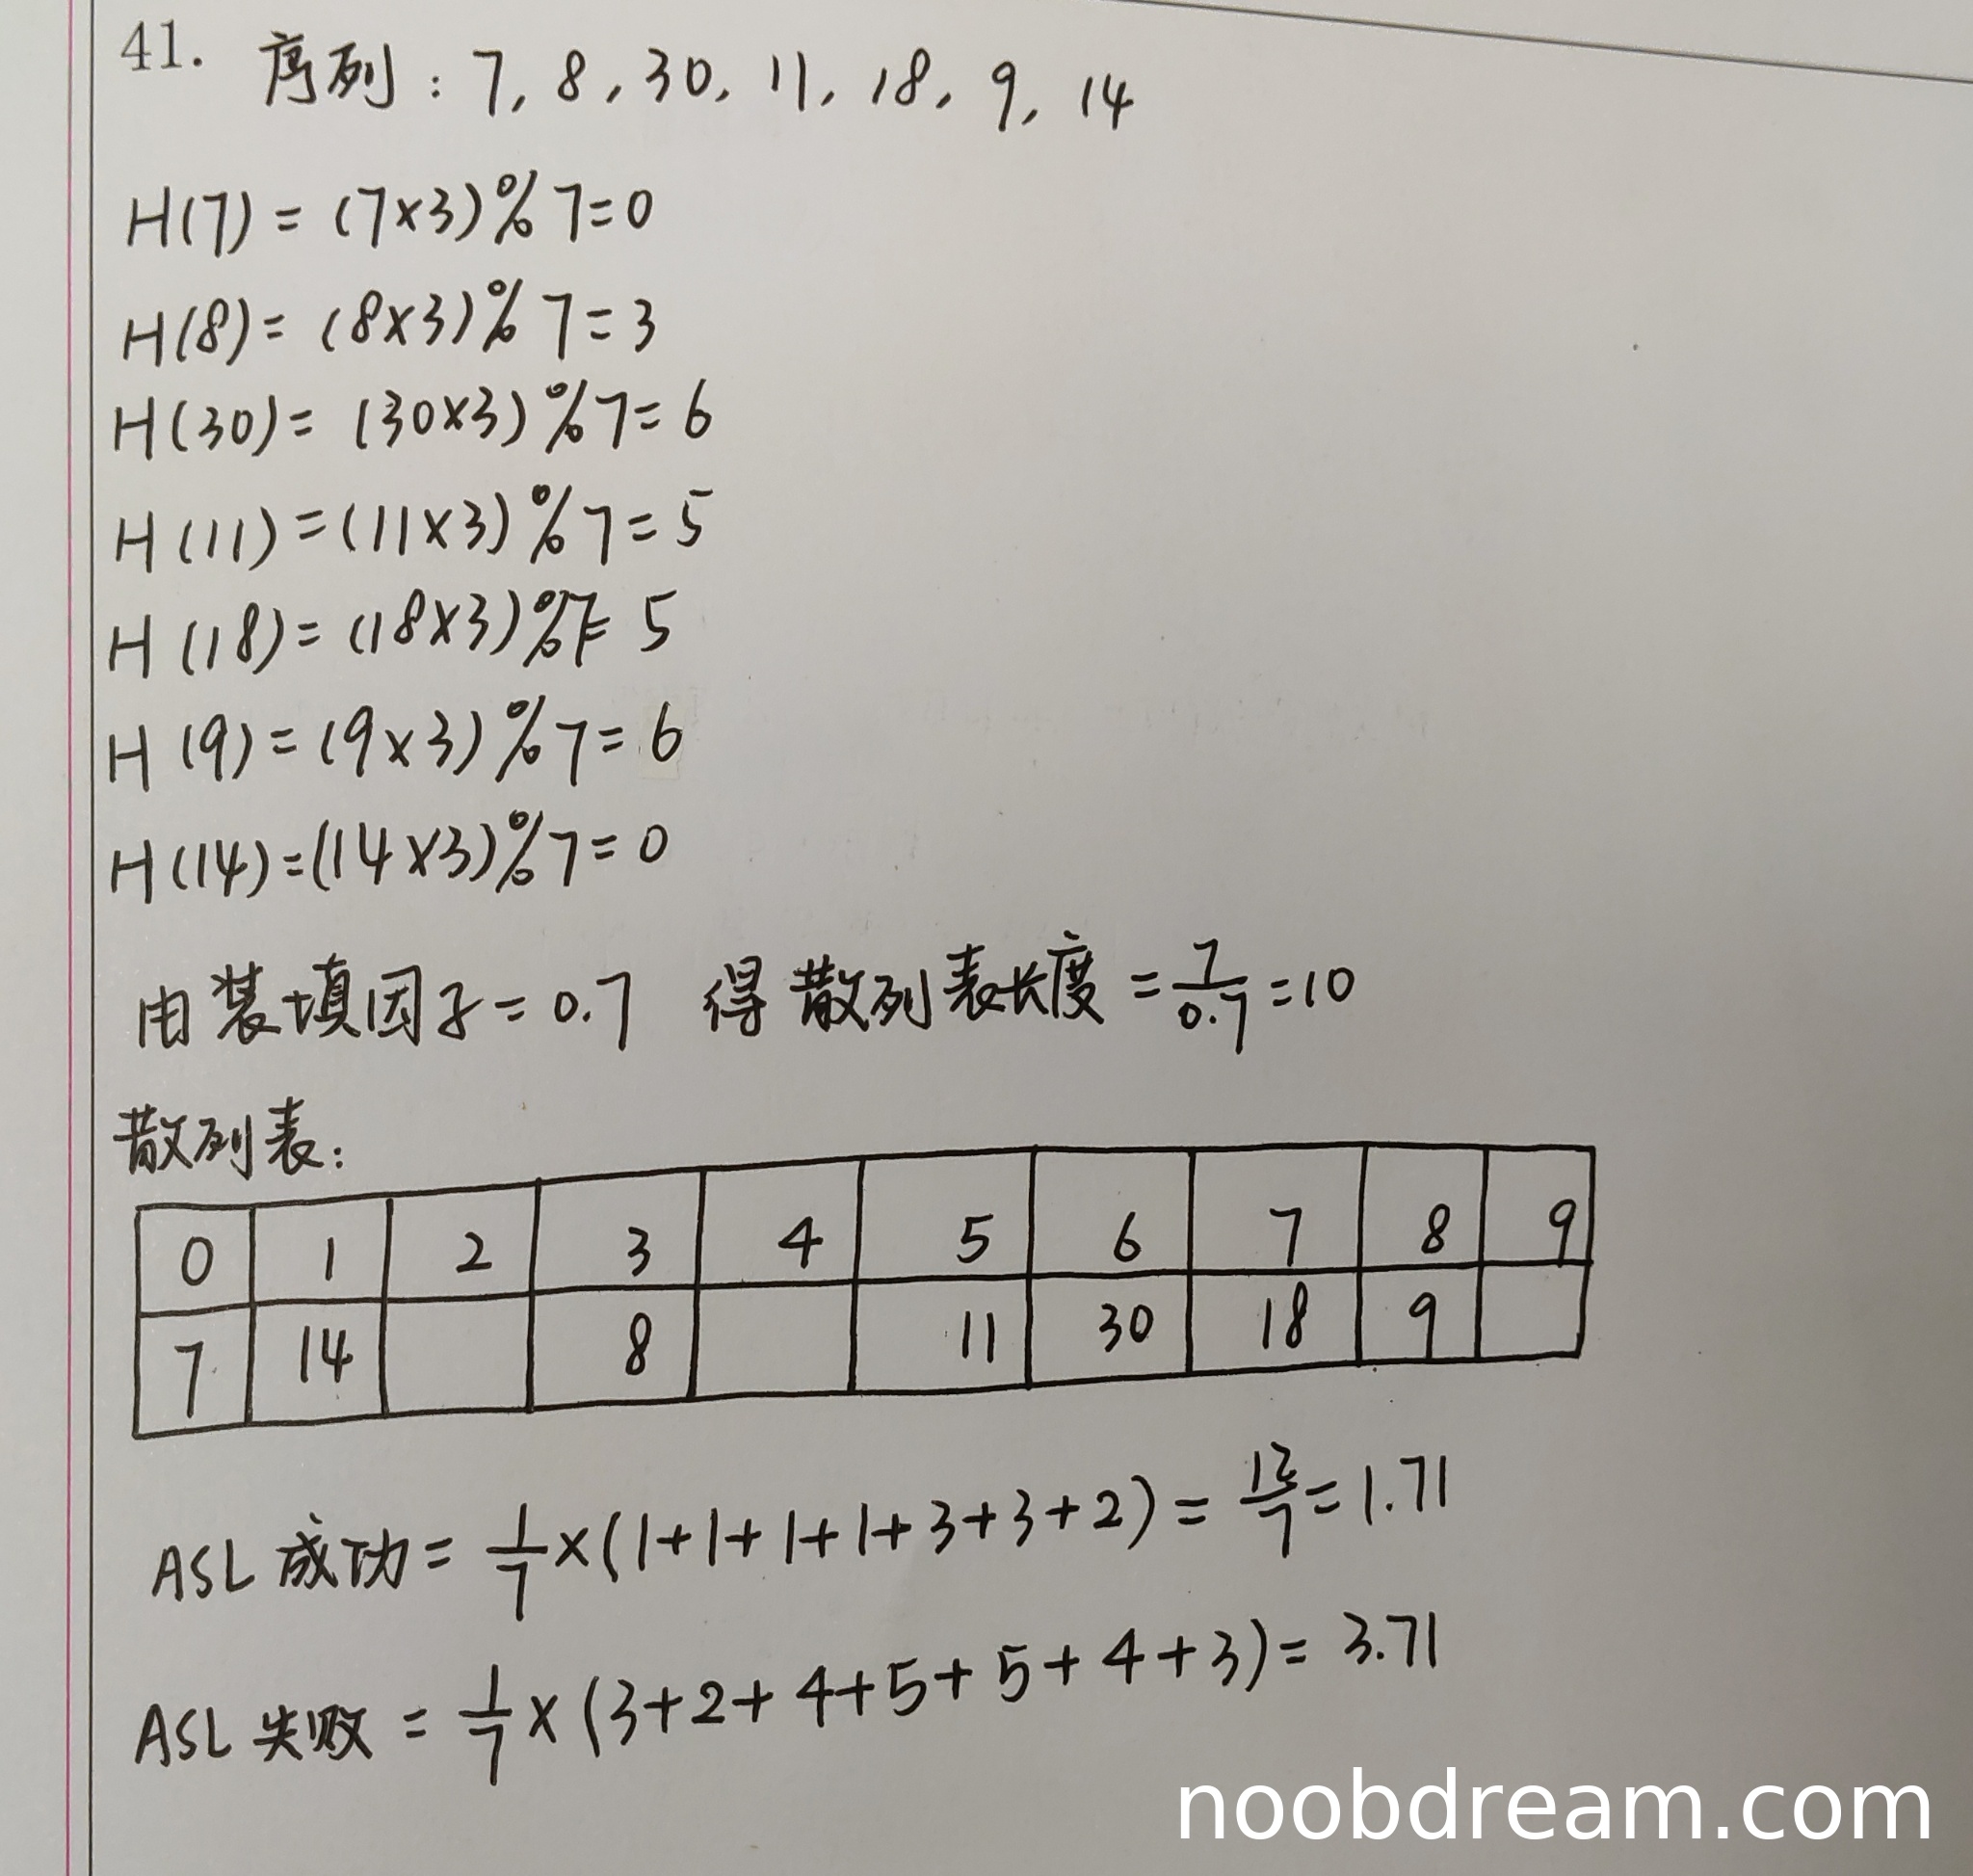 41. 序列：7, 8, 30, 11, 18, 9, 14
H(7) = (7×3)%7=0
H(8)= (8×3)%7=3
H(30)= (30×3)%7=6
H(11)=(11×3)%7=5
H(18)=(18×3)%7=5
H(9)=(9×3)%7=6
H(14)=(14×3)%7=0
由装填因子=0.7 得散列表长度=7/0.7=10
散列表:
0 1 2 3 4 5 6 7 8 9
7 14 8 11 30 18 9
ASL成功= 1/7×(1+1+1+1+3+3+2)= 12/7=1.71
ASL失败 = 1/7×(3+2+4+5+5+4+3)= 3.71
noobdream.com